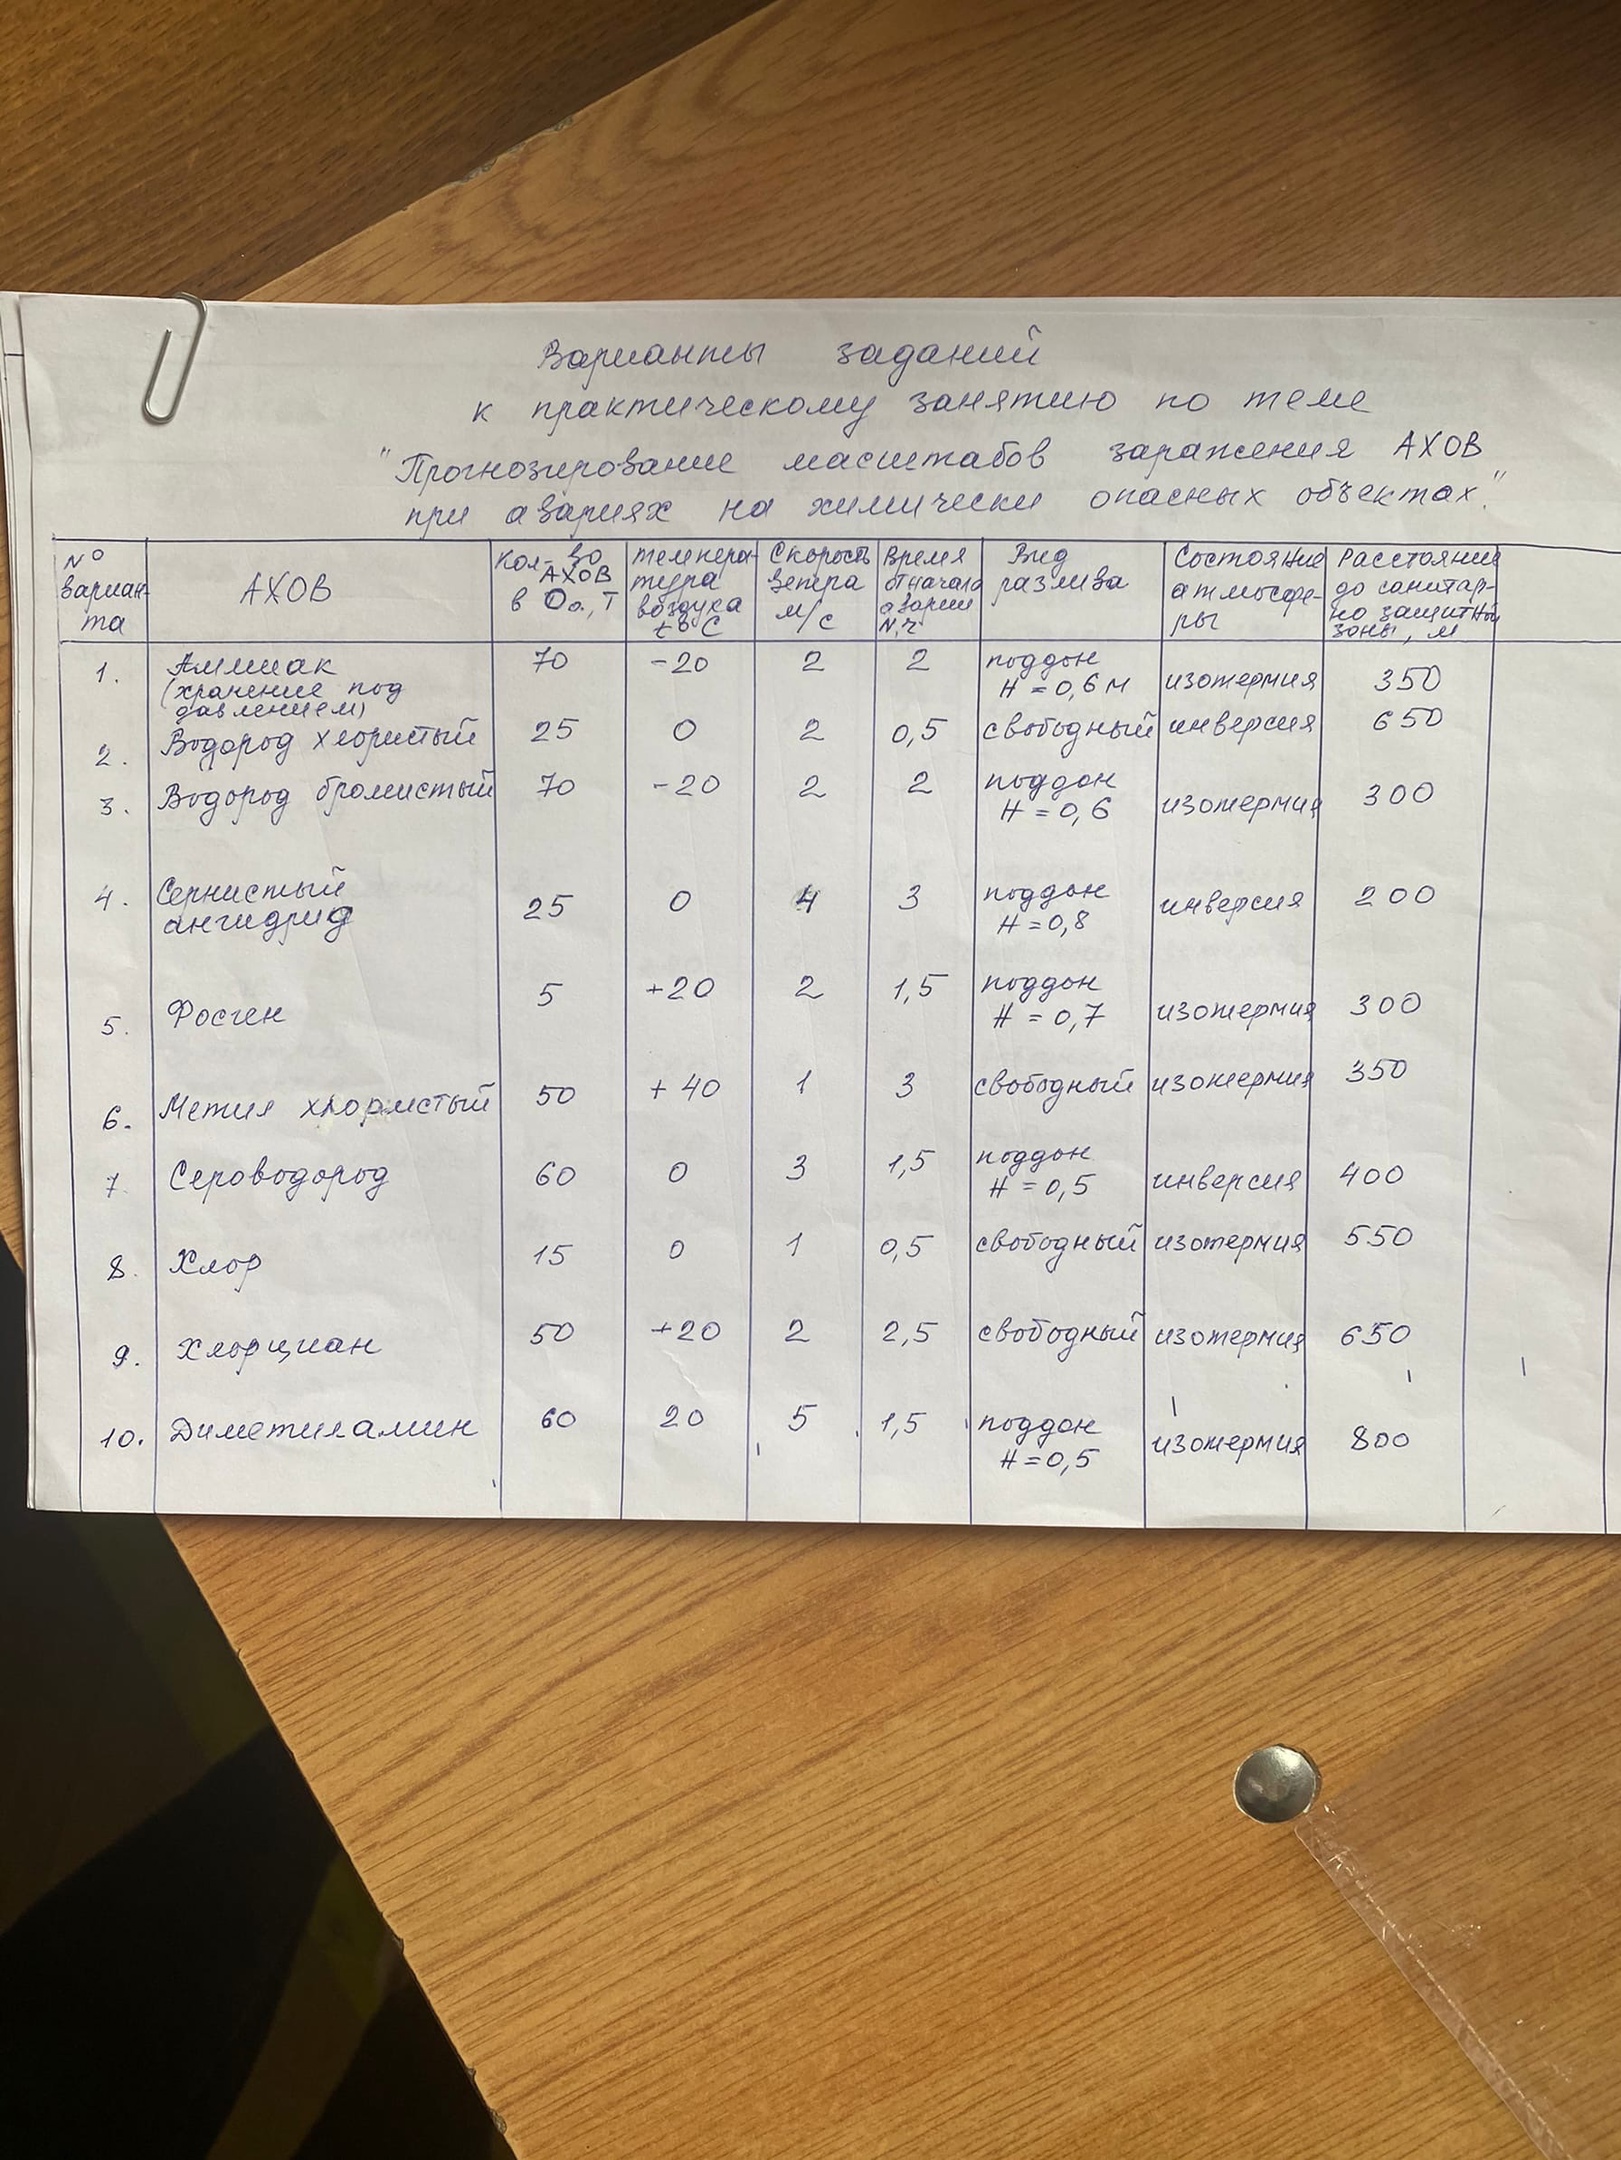 Варианты заданий
к практическому занятию по теме
"Прогнозирование масштабов заражения АХОВ
при авариях на химически опасных объектах."
№ варианта | АХОВ | Кол-во АХОВ в Qо, Т | температура воздуха t° С | Скорость ветра м/с | Время от начала аварии N, ч | Вид разлива | Состояние атмосферы | Расстояние до санитарно защитной зоны, м
1. Аммиак (хранение под давлением) 70 -20 2 2 поддон H = 0,6 м изотермия 350
2. Водород хлористый 25 0 2 0,5 свободный инверсия 650
3. Водород бромистый 70 -20 2 2 поддон H = 0,6 изотермия 300
4. Сернистый ангидрид 25 0 4 3 поддон H = 0,8 инверсия 200
5. Фосген 5 +20 2 1,5 поддон H = 0,7 изотермия 300
6. Метил хлористый 50 + 40 1 3 свободный изотермия 350
7. Сероводород 60 0 3 1,5 поддон H = 0,5 инверсия 400
8. Хлор 15 0 1 0,5 свободный изотермия 550
9. Хлорциан 50 +20 2 2,5 свободный изотермия 650
10. Диметиламин 60 20 5 1,5 поддон H = 0,5 изотермия 800